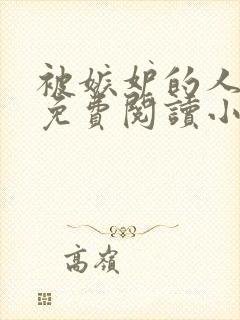 被嫉妒的人
免費閱讀小
高嶺